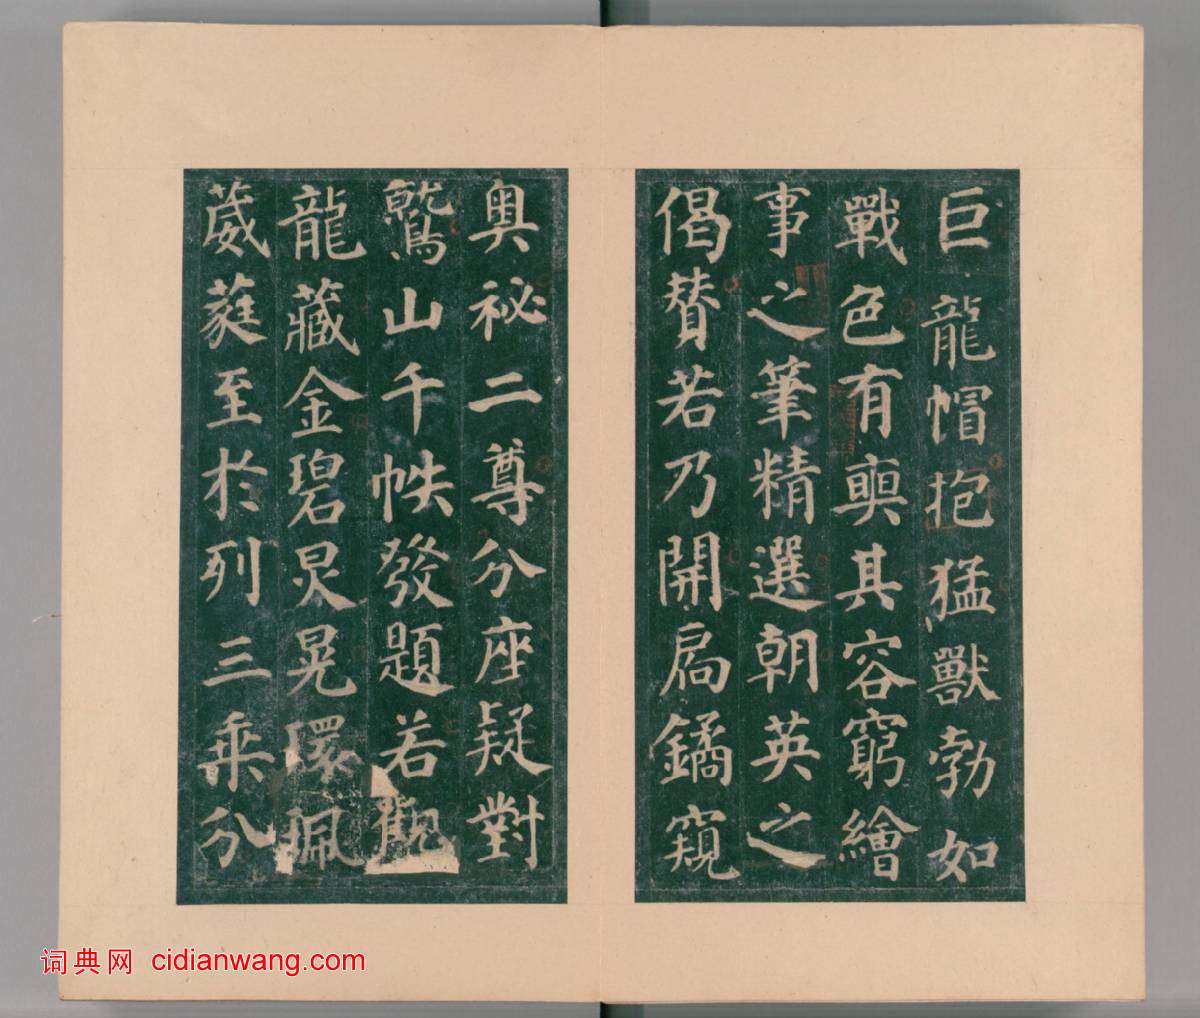 巨龍帽抱猛獸勃如
戰色有奭其容窮繪
事之筆精選朝英之
偈贊若乃開扃鐍窺
奧祕二尊分座疑對
鷲山千帙發題若觀
龍藏金碧炅晃環珮
葳蕤至於列三乘分
词典网 cidianwang.com